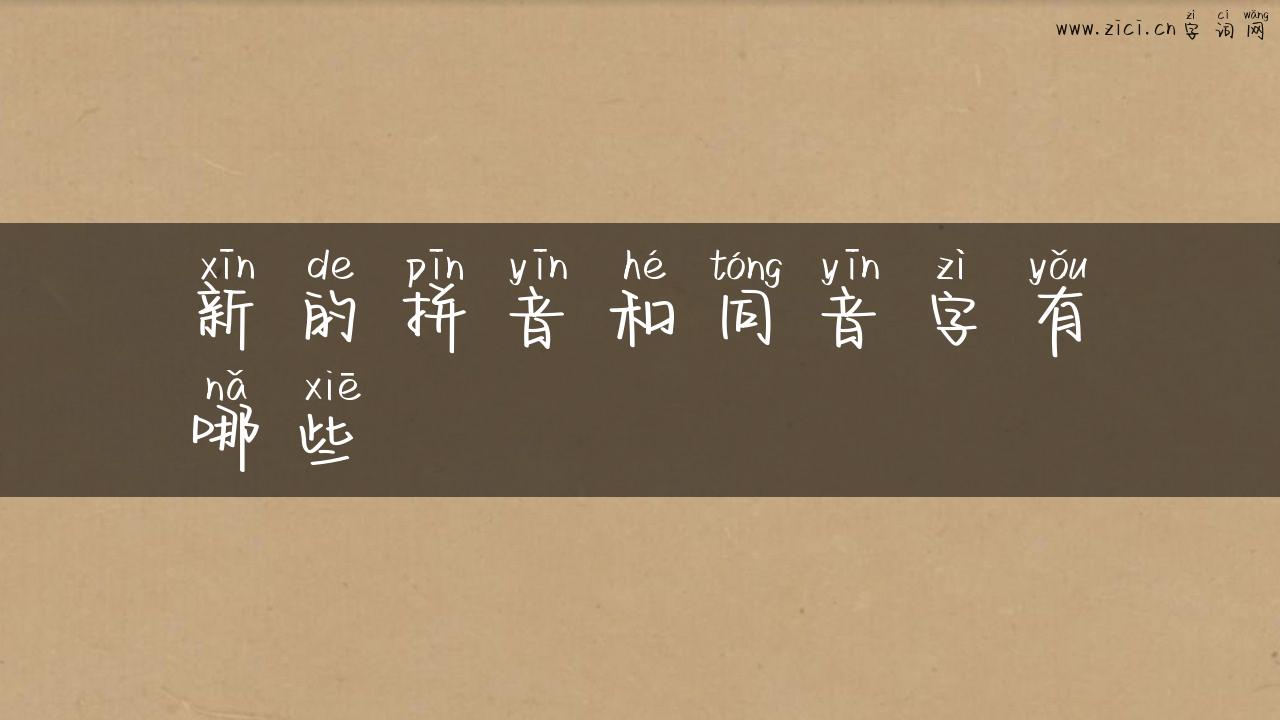 zì cí wǎng
www.zici.cn 字 词 网
xīn de pīn yīn hé tóng yīn zì yǒu
新 的 拼 音 和 同 音 字 有
nǎ xiē
哪 些